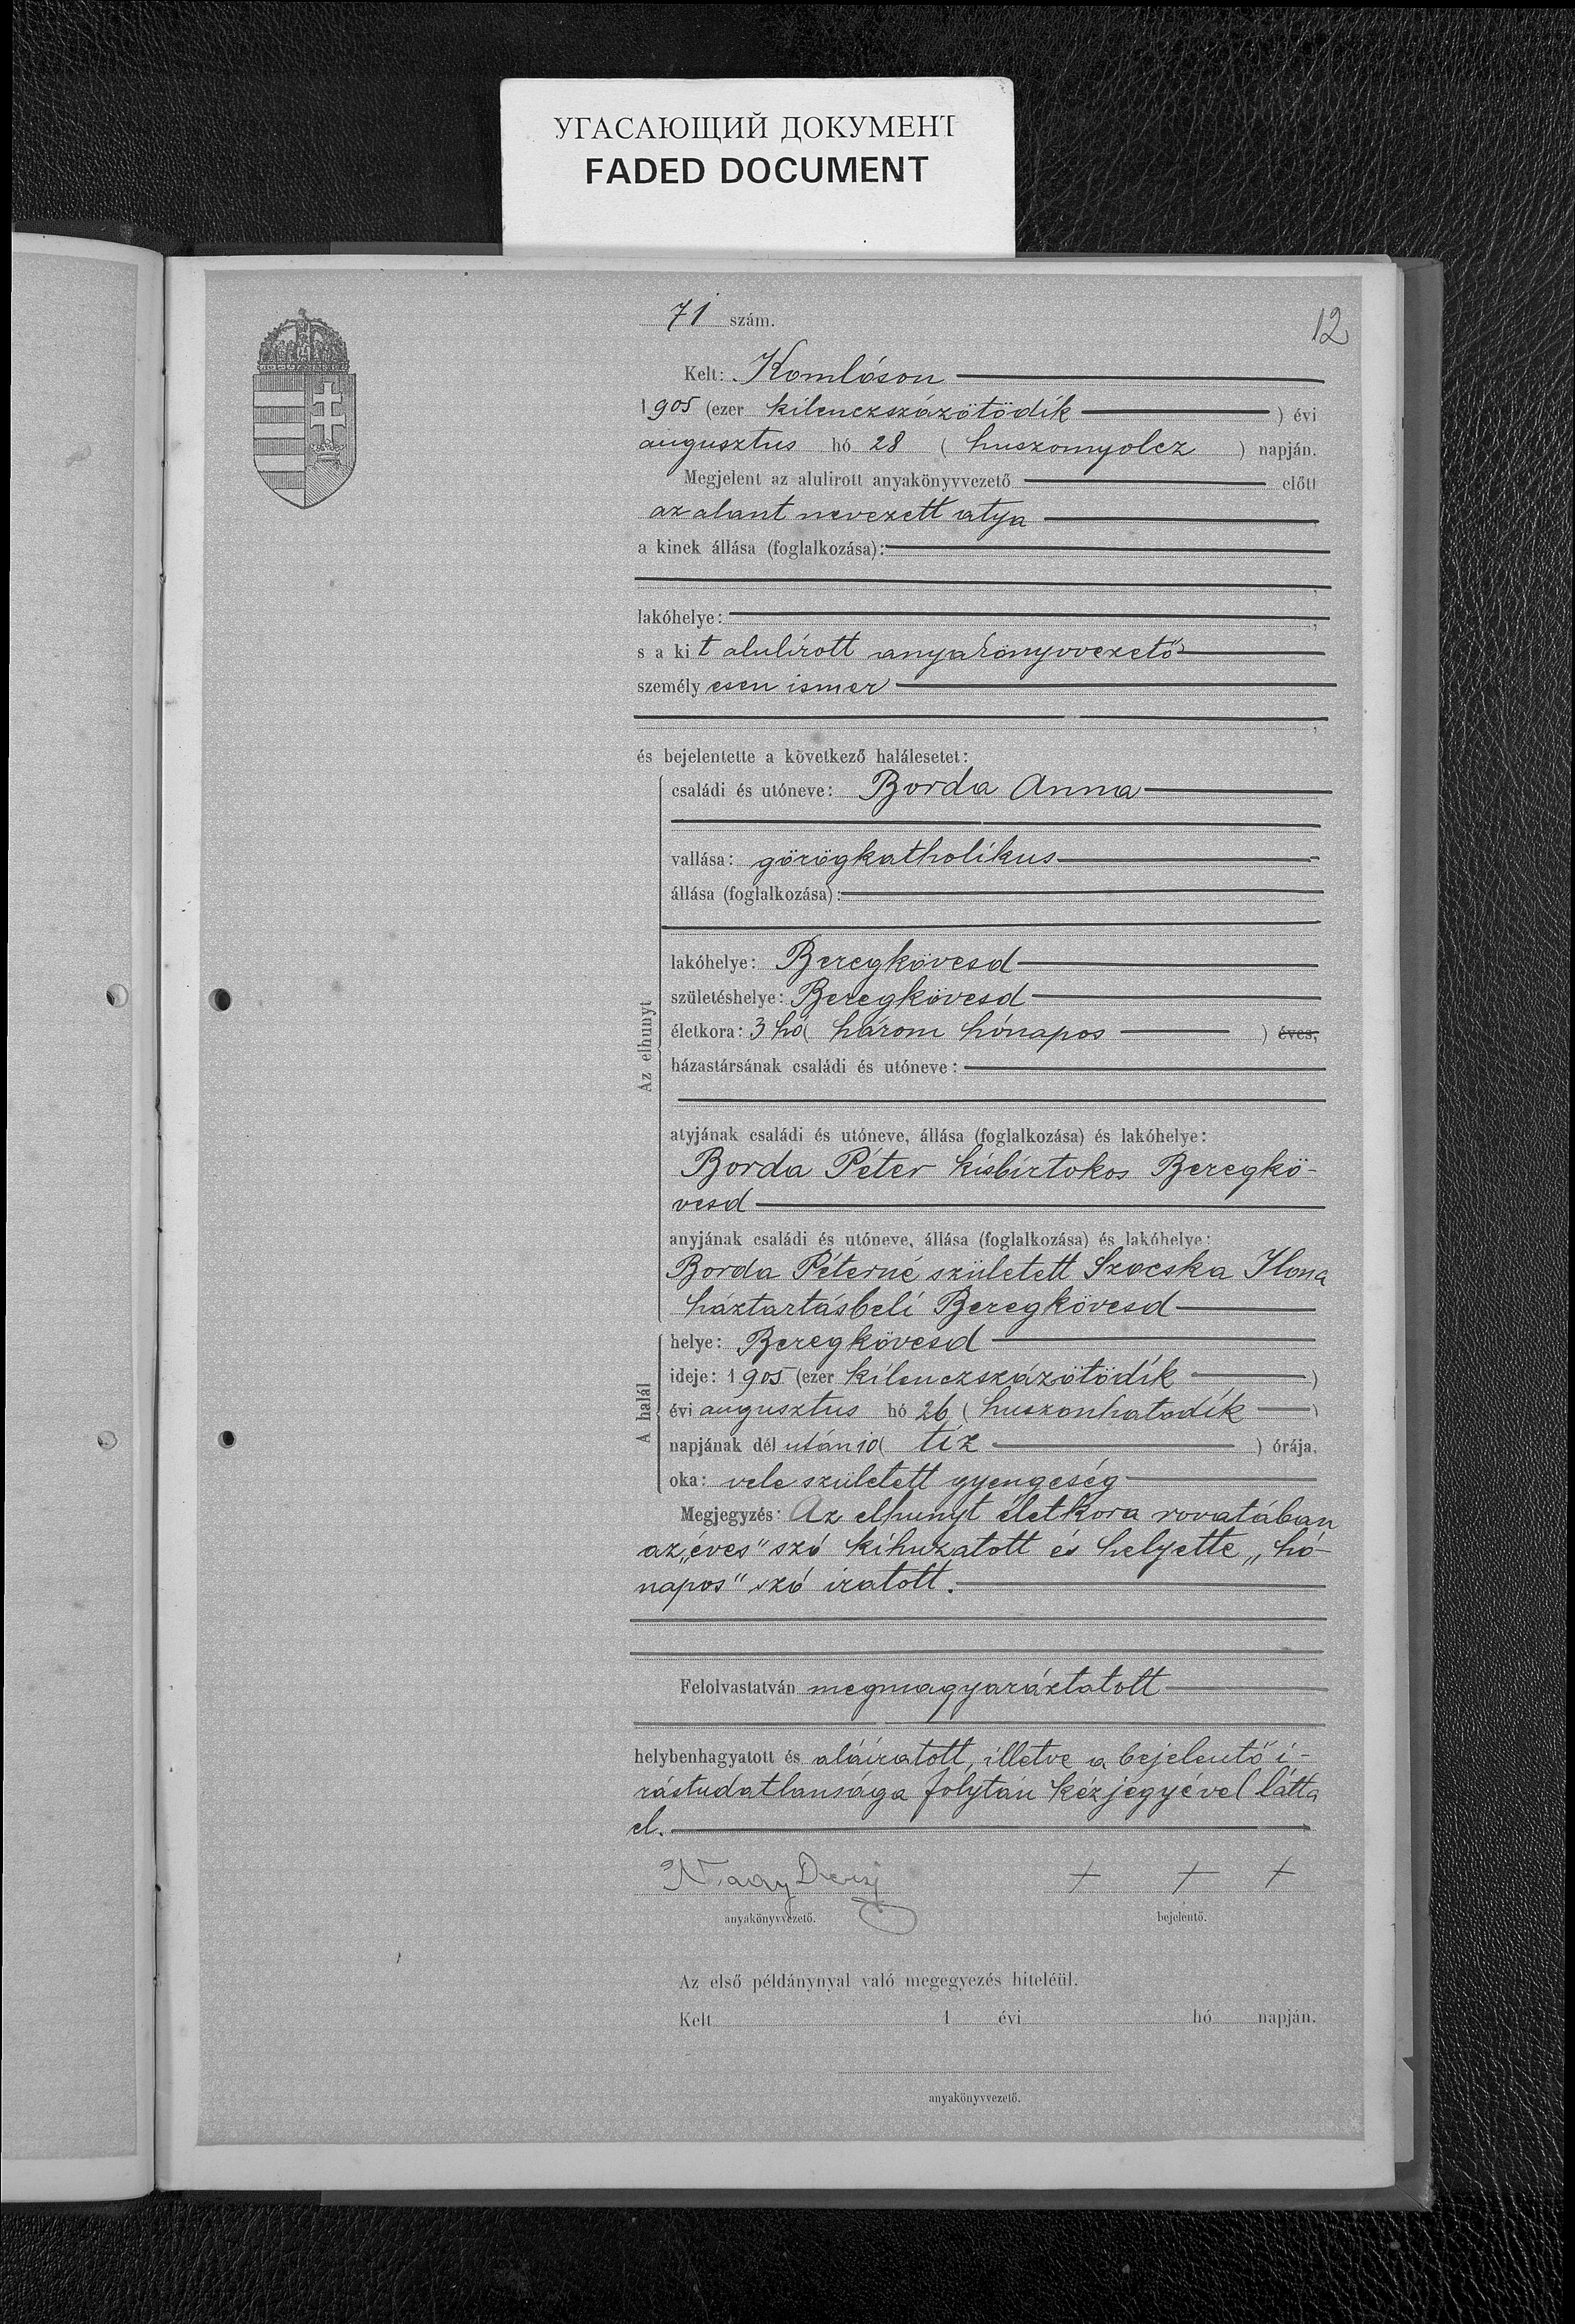 УГАСАЮЩИЙ ДОКУМЕНТ
FADED DOCUMENT
71 szám.
12
Kelt: Komlóson
1905 (ezer kilenczszázötödik ) évi
augusztus hó 28 ( huszonnyolcz ) napján.
Megjelent az alulirott anyakönyvvezető előtt
az alant nevezett atya
a kinek állása (foglalkozása):
lakóhelye:
s a kit alulírott anyakönyvvezető
személyesen ismer
és bejelentette a következő halálesetet:
Az elhunyt
családi és utóneve: Borda Anna
vallása: görögkatholikus
állása (foglalkozása):
lakóhelye: Beregkövesd
születéshelye: Beregkövesd
életkora: 3 hó ( három hónapos ) éves,
házastársának családi és utóneve:
atyjának családi és utóneve, állása (foglalkozása) és lakóhelye:
Borda Péter kisbirtokos Beregkö-
vesd
anyjának családi és utóneve, állása (foglalkozása) és lakóhelye:
Borda Péterné született Szocska Ilona
háztartásbeli Beregkövesd
A halál
helye: Beregkövesd
ideje: 1905 (ezer kilenczszázötödik )
évi augusztus hó 26 ( huszonhatodik )
napjának dél után 10 ( tíz ) órája.
oka: vele született gyengeség
Megjegyzés: Az elhunyt életkora rovatában
az „éves" szó kihuzatott és helyette „hó-
napos" szó iratott.
Felolvastatván megmagyaráztatott
helybenhagyatott és aláíratott, illetve a bejelentő í-
rástudatlansága folytán kézjegyével látta
el.
Nagy + + +
anyakönyvvezető. bejelentő.
Az első példánynyal való megegyezés hiteléül.
Kelt 1 évi hó napján.
anyakönyvvezető.